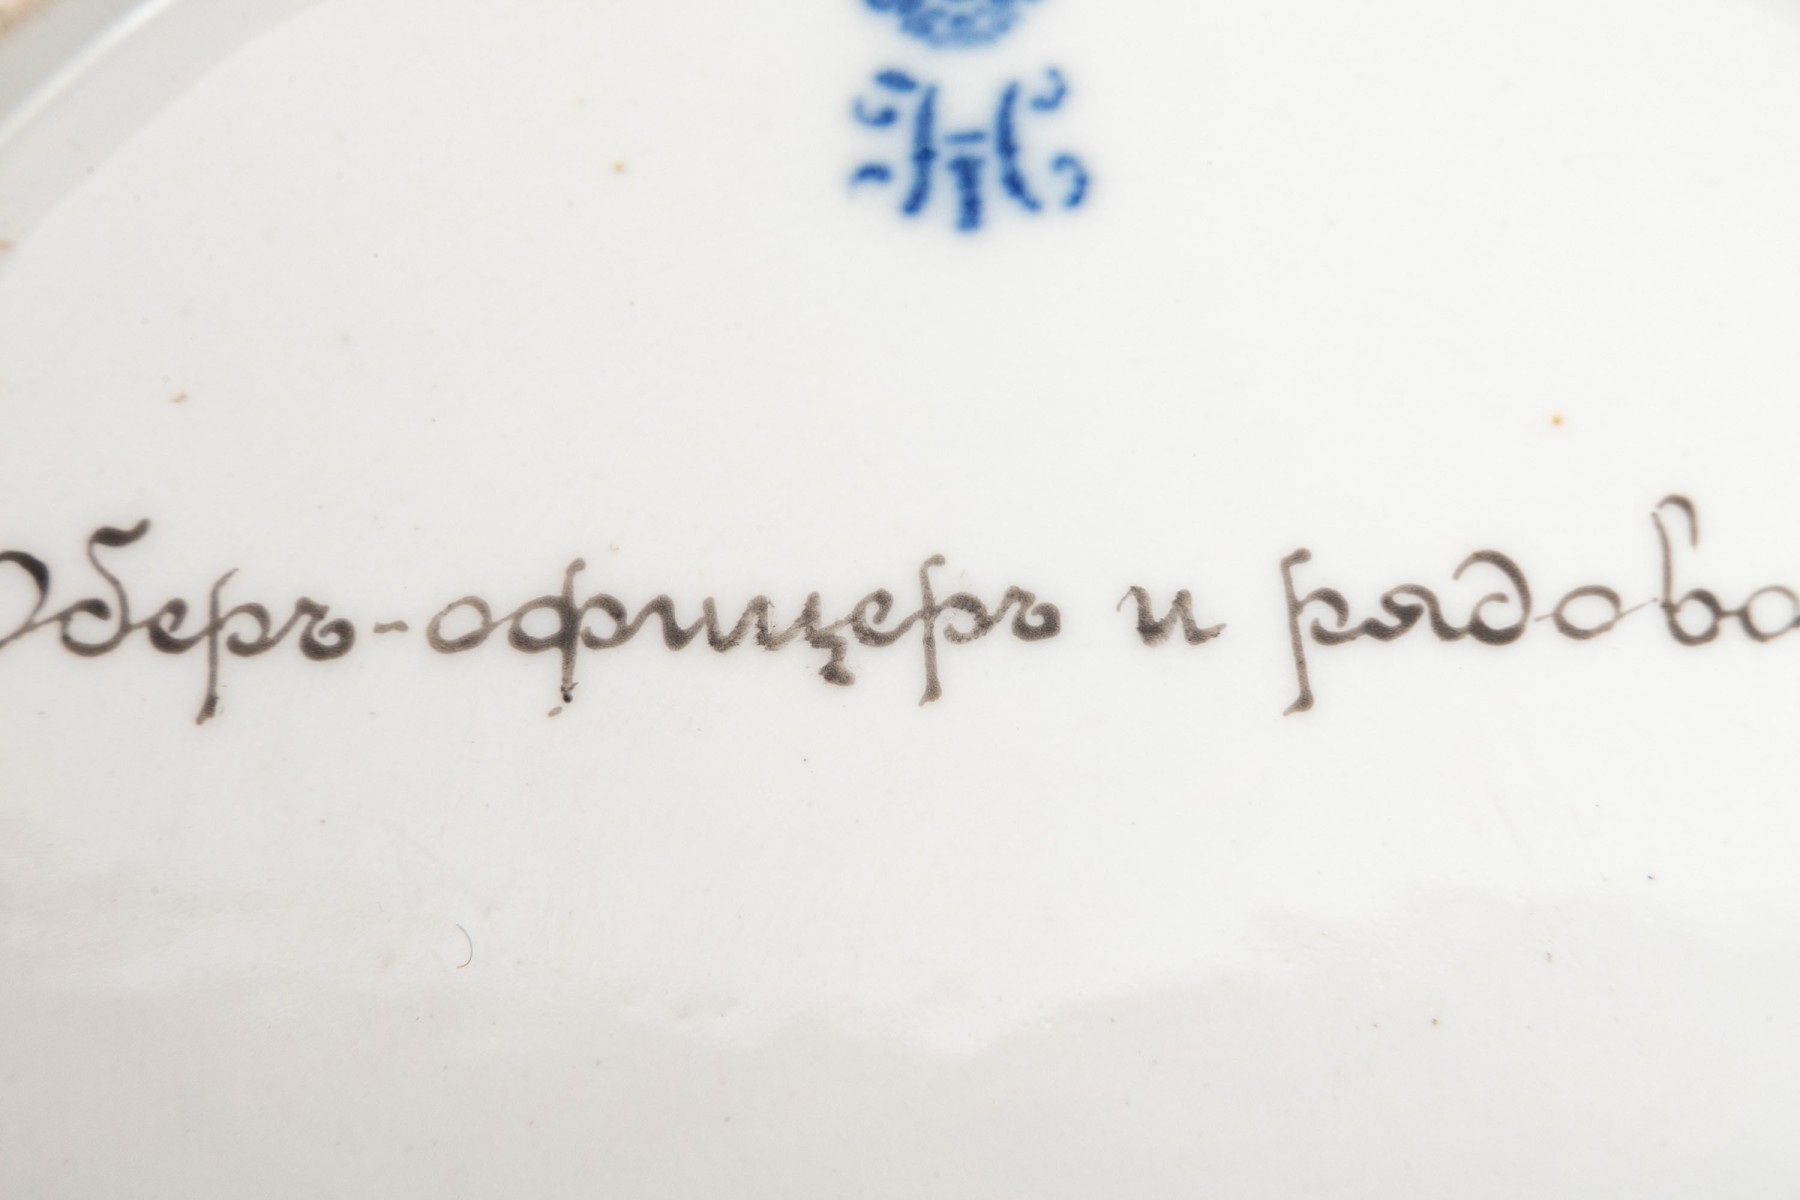 НI
Оберъ-офицеръ и рядово